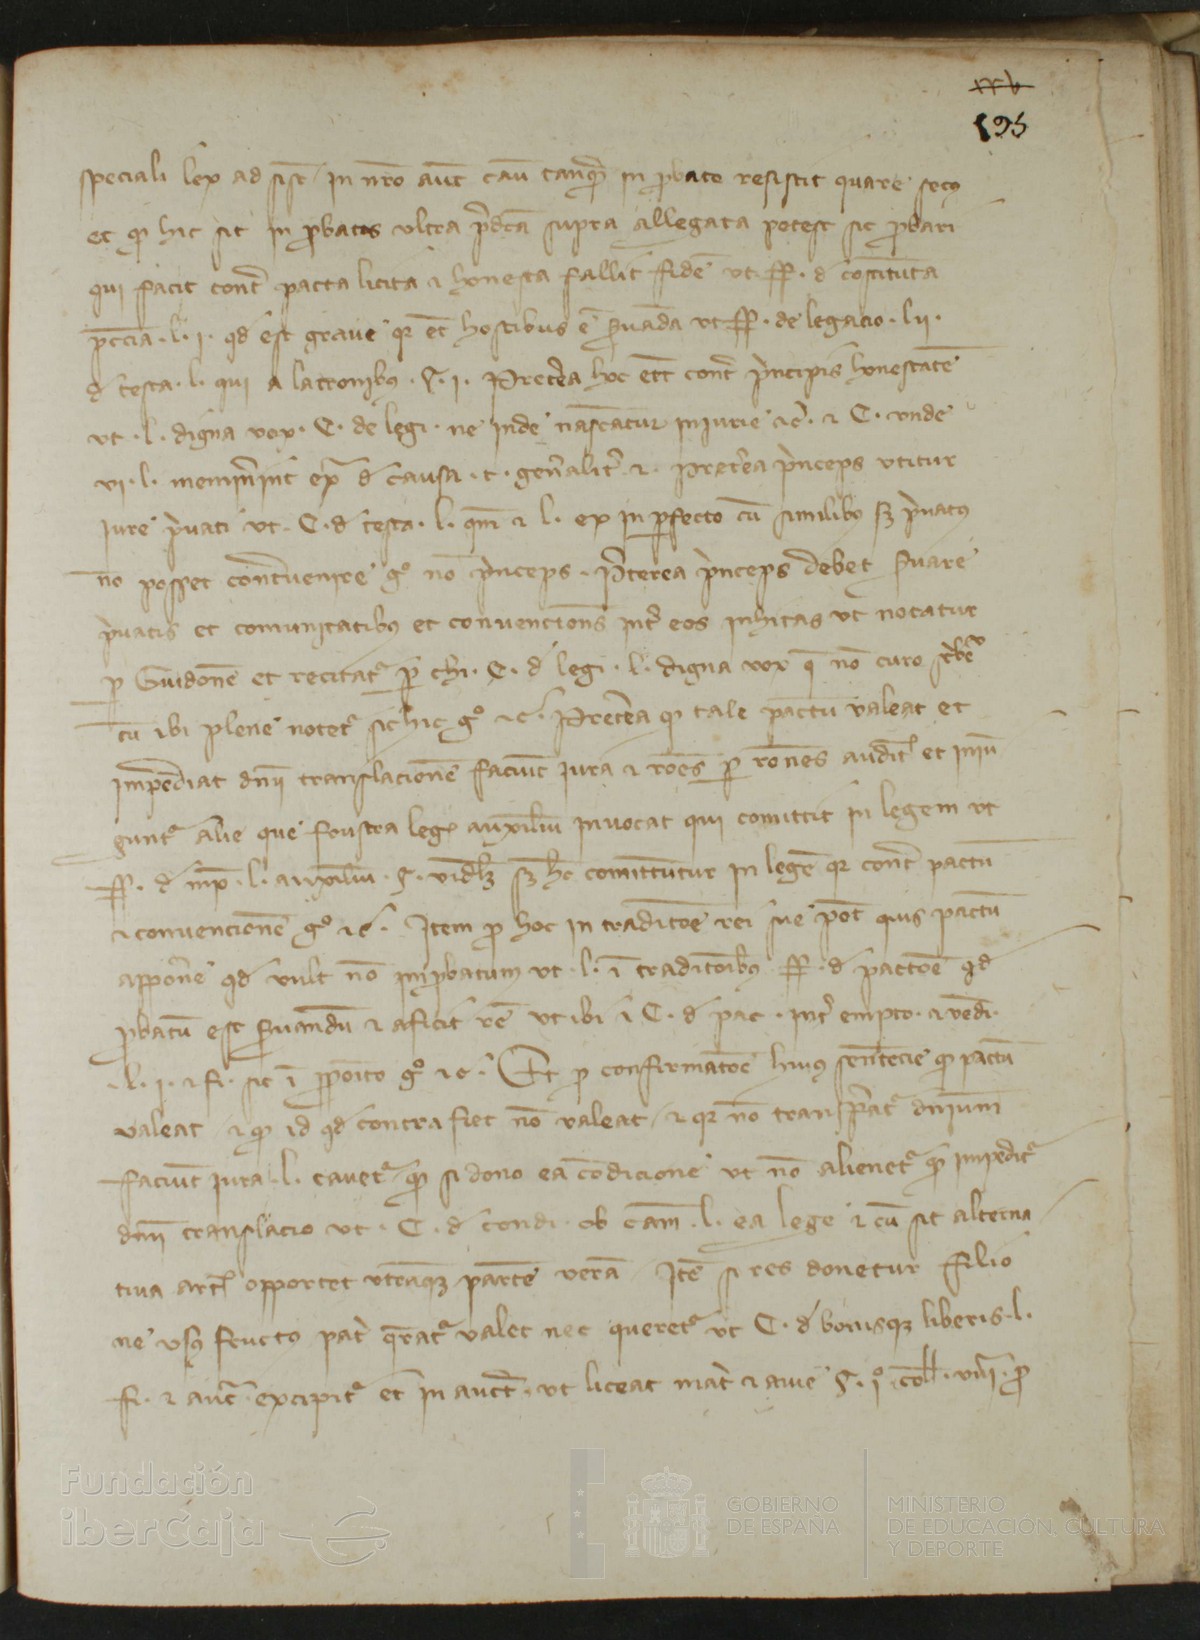 xxv
195
speciali lex ad sist in nr̄o aūt caū tanq̄ in pbato resistit quare secꝯ
et qꝫ hic sit in pbatos ultra p̄dc̄a supra allegata potest sic pbari
qui facit contr̄ pacta licita ⁊ honesta fallit fidē ut ff. d̄ constituta
pecc̄ia .l. i. qd̄ est graue qr et hostibus ē s̄uāda ut ff. de legacio. l ii.
d̄ testa. l. qui a latronibꝯ .§. i. Pret̄ea hoc ett contr̄ p̄ncipis honestatē
ut .l. digna uox. C. de legi. ne inde nascātur iniurie ⁊c̄. ⁊ C. unde
vi. l. memin̄int d̄ causa. gen̄alit̄ ⁊. Pret̄ea p̄nceps utitur
iure p̄uati ut. C. d̄ testa. l. qm̄ ⁊ l. ex inp̄fecto cū similibꝯ sꝫ p̄uatꝯ
nō posset contuenire gͦ nō p̄nceps. P̄terea p̄nceps debet s̄uare
p̄uatis et comunitatibꝯ et conuencions int̄ eos inhitas ut notatur
p Guidonē et recitat᷑ p̄ chi. C. d̄ legi .l. digna uox q̄ nō curo sc̄bē
cū ibi plene notet᷑ sic hic gͦ ⁊c̄. Pret̄ea qꝫ tale pactū ualeat et
impediat dn̄ii translacionē faciūt iura ⁊ rōes p̄ rōnes audit᷑ et iniū
gunt᷑ alie que frustra leg᷑ auxiliū inuocat qui comittit in legem ut
ff. d̄ mp̄. l. auxiliū .§. uidlꝫ sꝫ h̄c comittuntur in legē qr contr̄ pactū
⁊ conuencionē gͦ ⁊c̄. Item p hoc in traditōe rei sue pōt quis pactū
appon̄e qd̄ uult nō inpbatum ut .l. ī traditōibꝯ ff. d̄ pactōe qd̄
pbatū est s̄uandū ⁊ aficit rē ut ibi ī C. d̄ pac. int̄ empto. ⁊ uendi.
.l. i. ⁊ fi. sic ī pposito gͦ ⁊c̄. Et p confirmatōe huiꝯ sentēcie qꝫ pactū
ualeat ⁊ qꝫ id qd̄ contra fiet nō ualeat ⁊ qr nō transferat᷑ dn̄ium
faciūt iura .l. cauet᷑ qꝫ si dono ea condicione ut nō alienet᷑ qꝫ impedit᷑
dn̄ii translacio ut. C. d̄ condi. ob cam̄. l. ea lege ⁊ cū sit alterna
tiua art᷑ opportet utrāqꝫ partē uerā Itē si res donetur filio
ne usꝯ fructo pat̄i q̄rat᷑ ualet nec queret᷑ ut C. d̄ bonisqꝫ liberis. l.
fi. ⁊ auc̄t. excipit᷑ et in auct. ut liceat mat̄i ⁊ auie §. iͦ. coll. viii. p
Fundación
iberCaja
GOBIERNO
DE ESPAÑA
MINISTERIO
DE EDUCACIÓN, CULTURA
Y DEPORTE